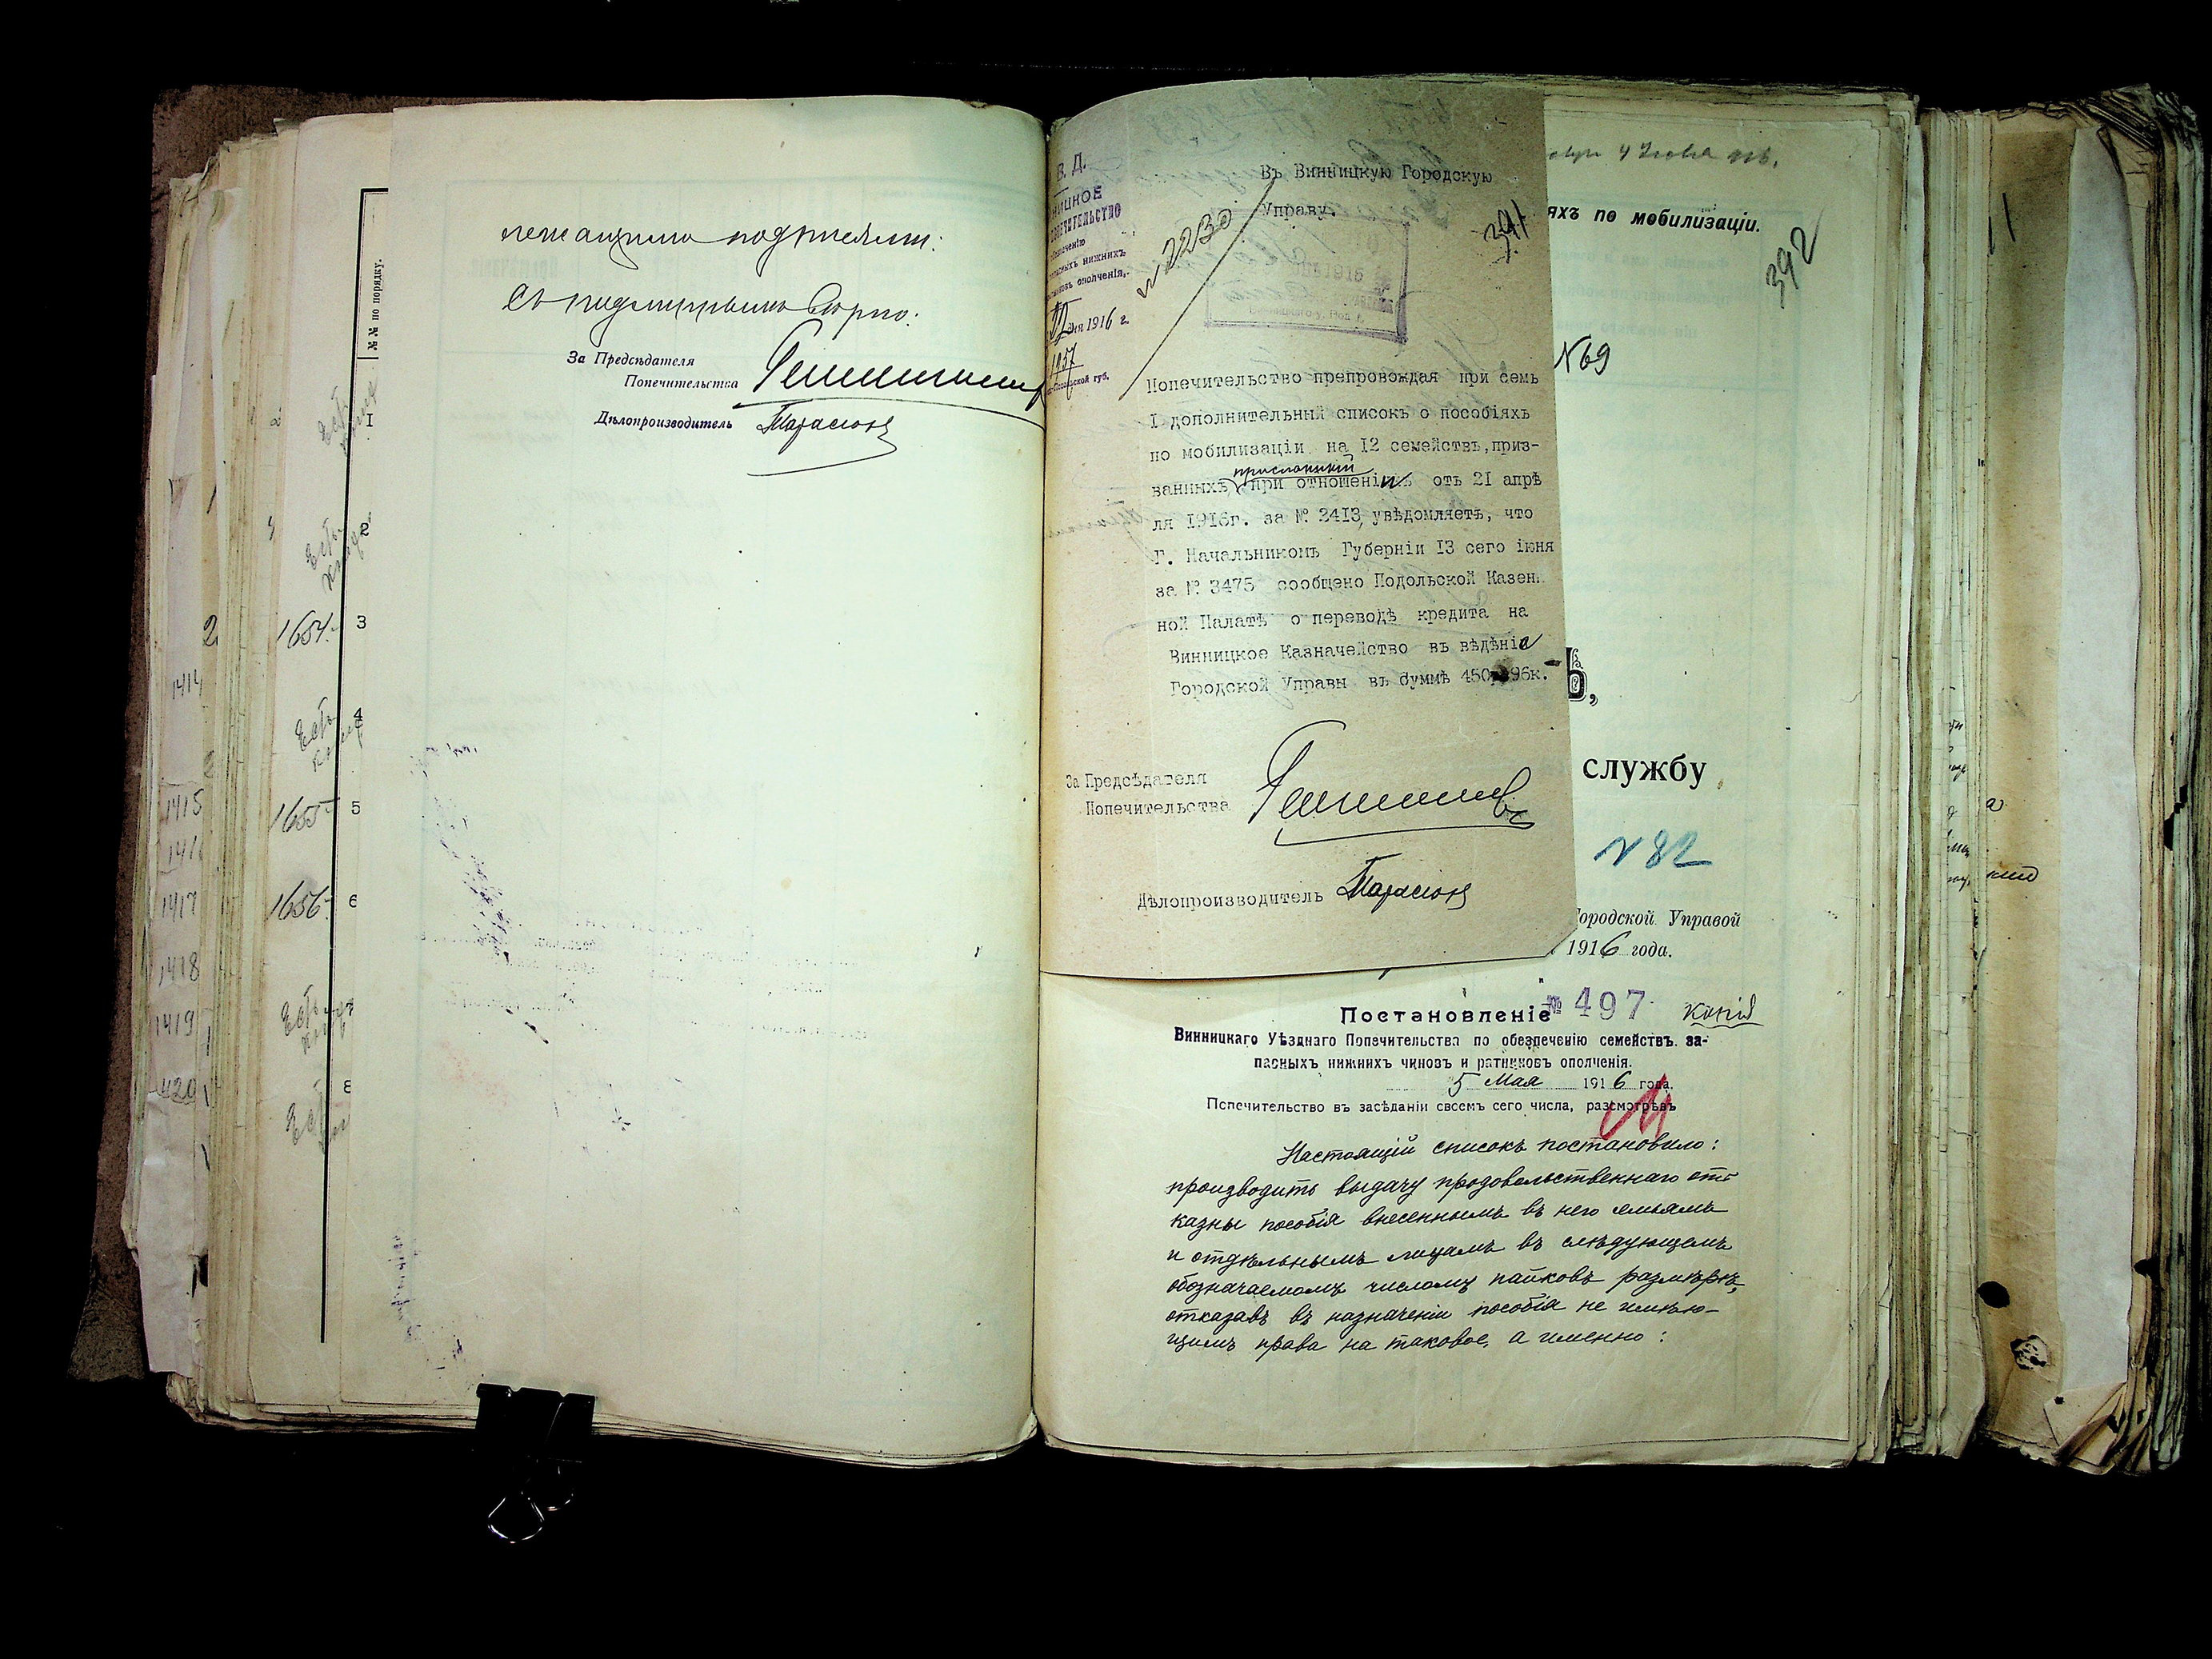 №№ по порядку.
1
2
3
4
5
6
8
1654.
1655
1656.
1414
1415
1417
1418
1419
лежащими подписями.
Съ подлиннымъ вѣрно:
За Предсѣдателя
Попечительства
Дѣлопроизводитель
В. Д.
НИЦКОЕ
ПОПЕЧИТЕЛЬСТВО
нижнихъ
ополченія,
1916 г.
1957
губ.
№ 2230
Въ Винницкую Городскую
Управу.
391
1916
Попечительство препровождая при семь
I дополнительный списокъ о пособіяхъ
по мобилизаціи на 12 семействъ, приз-
присланный
ванныхъ, при отношеніи отъ 21 апрѣ
ля 1916г. за № 2413, увѣдомляетъ, что
Г. Начальникомъ Губерніи 13 сего іюня
за № 3475 сообщено Подольской Казен.
ной Палатѣ о переводѣ кредита на
Винницкое Казначейство въ вѣдѣніе
Городской Управы въ суммѣ 450 96к.
За Предсѣдателя
Попечительства
Дѣлопроизводитель
яхъ по мобилизаціи.
392
№69
Ъ,
службу
№ 82
Городской Управой
1916 года.
Постановленіе № 497 копія
Винницкаго Уѣзднаго Попечительства по обезпеченію семействъ за-
пасныхъ нижнихъ чиновъ и ратниковъ ополченія.
5 Мая 1916 года.
Попечительство въ засѣданіи своемъ сего числа, разсмотрѣвъ
Настоящій списокъ постановило:
производить выдачу продовольственнаго отъ
казны пособія внесеннымъ въ него семьямъ
и отдѣльнымъ лицамъ въ слѣдующемъ
обозначаемому числому пайковъ размѣрѣ,
отказавъ въ назначеніи пособія не имѣю-
щимъ права на таковое, а именно: